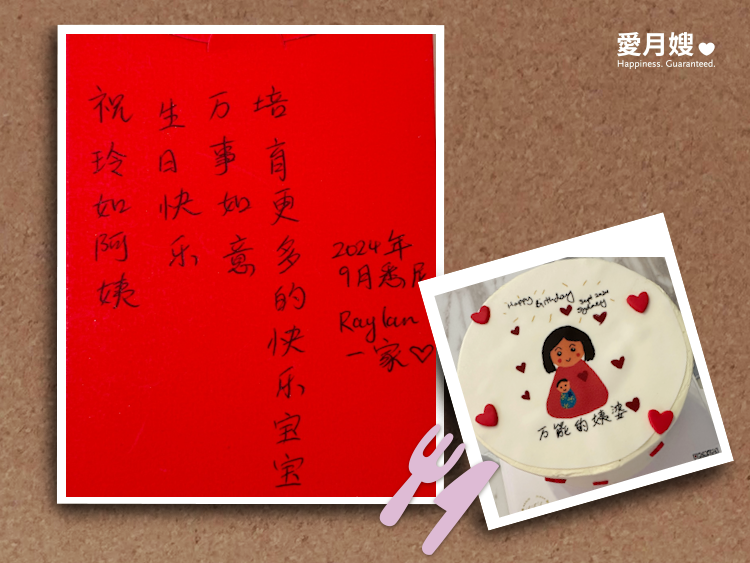 愛月嫂
Happiness. Guaranteed.
祝玲如阿姨
生日快乐
万事如意
培育更多的快乐宝宝
2024年
9月悉尼
Raylan
一家
Happy Birthday
Sept 2024
Sydney
万能的姨婆